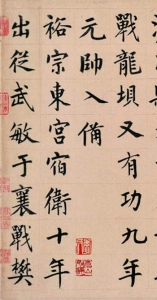 戰龍垻又有功九年
元帥入備
裕宗東宮宿衛十年
出從武敏于襄戰樊